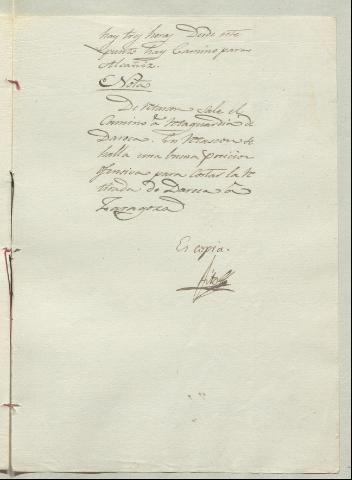 hay trs horas Desde este
punto hay Camino para
Alcañiz.
Nota
De sale el
Camino á Retaguardia de
Daroca. En se
halla una buena posicion
ofensiva para cortar la Re
tirada de Daroca á
Zaragoza
Es copia.